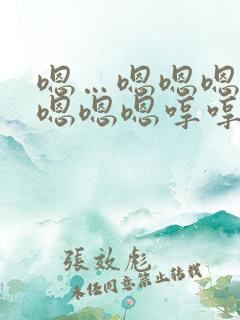 嗯…嗯嗯嗯
嗯嗯嗯哼哼
張效彪
未任同意禁止转载